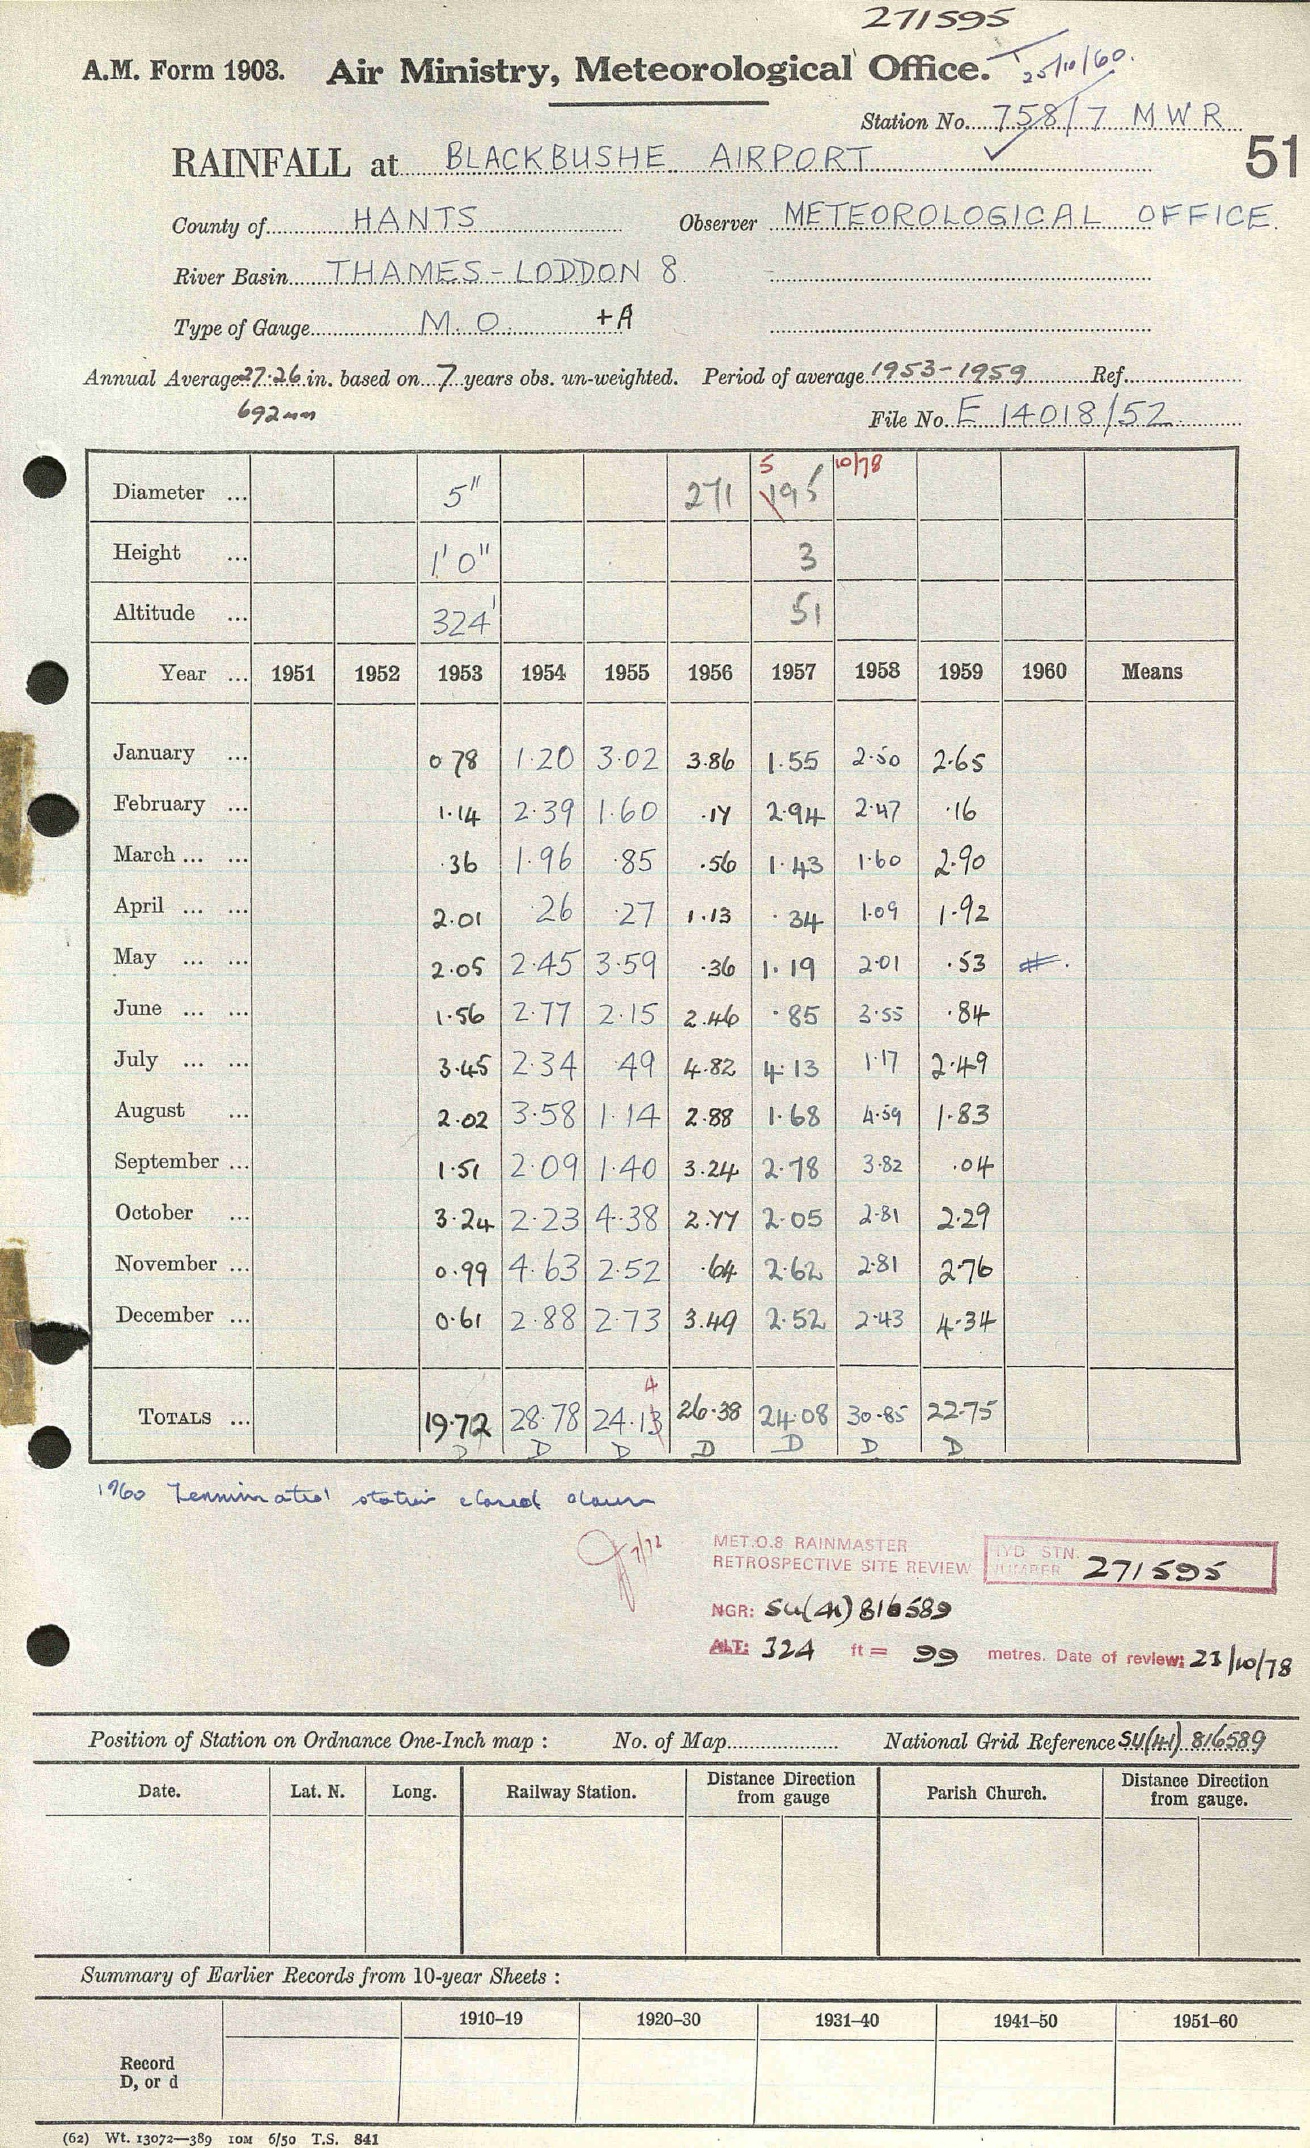 271595
A.M. Form 1903. Air Ministry, Meteorological Office. 25/10/60.
Station No. 758/7 MWR
RAINFALL at BLACKBUSHE AIRPORT 51
County of HANTS Observer METEOROLOGICAL OFFICE.
River Basin THAMES-LODDON 8.
Type of Gauge M.O. +A
Annual Average 27.26 in. based on 7 years obs. un-weighted. Period of average 1953-1959 Ref.
692mm File No. E 14018/52
5 10/78
Diameter ... 5" 271 195
Height ... 1' 0" 3
Altitude ... 324' 51
Year ... 1951 1952 1953 1954 1955 1956 1957 1958 1959 1960 Means
January ... 0.78 1.20 3.02 3.86 1.55 2.50 2.65
February ... 1.14 2.39 1.60 .17 2.94 2.47 .16
March ... ... .36 1.96 .85 .56 1.43 1.60 2.90
April ... ... 2.01 .26 .27 1.13 .34 1.09 1.92
May ... ... 2.05 2.45 3.59 .36 1.19 2.01 .53 #.
June ... ... 1.56 2.77 2.15 2.46 .85 3.55 .84
July ... ... 3.45 2.34 .49 4.82 4.13 1.17 2.49
August ... 2.02 3.58 1.14 2.88 1.68 4.59 1.83
September ... 1.51 2.09 1.40 3.24 2.78 3.82 .04
October ... 3.24 2.23 4.38 2.77 2.05 2.81 2.29
November ... 0.99 4.63 2.52 .64 2.62 2.81 2.76
December ... 0.61 2.88 2.73 3.49 2.52 2.43 4.34
4
TOTALS ... 19.72 28.78 24.13 26.38 24.08 30.85 22.75
D D D D D D D
1960 Terminated station closed down
7/72
MET.O.8 RAINMASTER
RETROSPECTIVE SITE REVIEW
HYD. STN. NUMBER 271595
NGR: SU(41) 816589
ALT: 324 ft = 99 metres. Date of review: 23/10/78
Position of Station on Ordnance One-Inch map : No. of Map National Grid Reference SU(41) 816589
Date. Lat. N. Long. Railway Station. Distance Direction from gauge Parish Church. Distance Direction from gauge.
Summary of Earlier Records from 10-year Sheets :
1910–19 1920–30 1931–40 1941–50 1951–60
Record
D, or d
(62) Wt. 13072—389 10M 6/50 T.S. 841